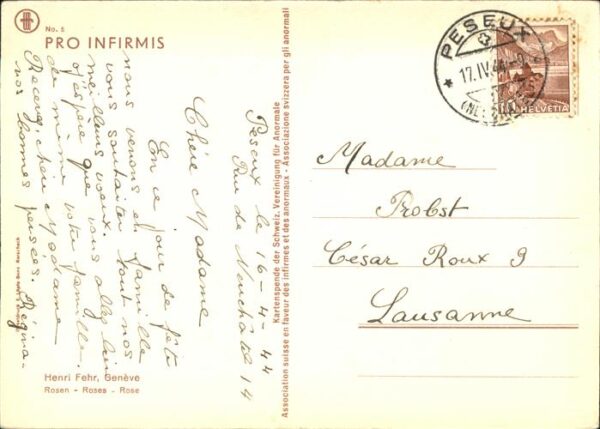 No. 5
PRO INFIRMIS
Peseux le 16-4-44
Rue de Neuchâtel 14
Chère Madame
En ce jour de fête
nous venons en famille
vous souhaiter tout nos
meilleurs voeux.
J'espère que vous allez bien
de même votre famille.
Recevez, chère Madame
nos bonnes pensées. Régina-
Henri Fehr, Genève
Rosen - Roses - Rose
Kartenspende der Schweiz. Vereinigung für Anormale
Association suisse en faveur des infirmes et des anormaux - Associazione svizzera per gli anormali
PESEUX
17.IV.44
HELVETIA
Madame
Probst
César Roux 9
Lausanne